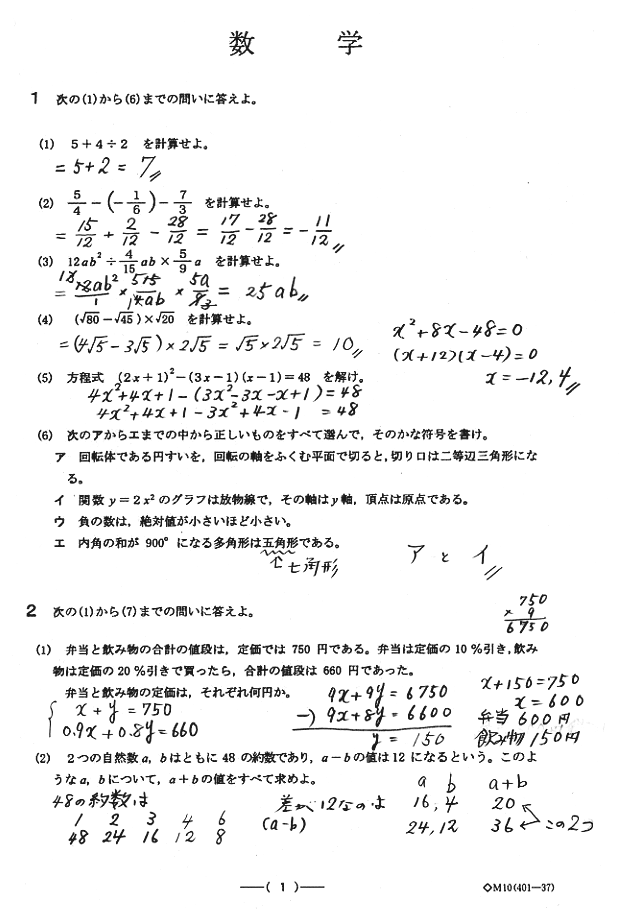 数 学
1 次の(1)から(6)までの問いに答えよ。
(1) 5+4÷2 を計算せよ。
= 5+2 = 7
(2) 5/4 − (−1/6) − 7/3 を計算せよ。
= 15/12 + 2/12 − 28/12 = 17/12 − 28/12 = −11/12
(3) 12ab² ÷ 4/15 ab × 5/9 a を計算せよ。
= 12ab²/1 × 15/4ab × 5a/9 = 25ab
(4) (√80−√45)×√20 を計算せよ。
=(4√5−3√5)×2√5 = √5×2√5 = 10
x²+8x−48=0
(x+12)(x−4)=0
x=−12,4
(5) 方程式 (2x+1)²−(3x−1)(x−1)=48 を解け。
4x²+4x+1−(3x²−3x−x+1)=48
4x²+4x+1−3x²+4x−1 =48
(6) 次のアからエまでの中から正しいものをすべて選んで,そのかな符号を書け。
ア 回転体である円すいを,回転の軸をふくむ平面で切ると,切り口は二等辺三角形にな
る。
イ 関数 y=2x² のグラフは放物線で,その軸は y 軸,頂点は原点である。
ウ 負の数は,絶対値が小さいほど小さい。
エ 内角の和が 900° になる多角形は五角形である。
七角形
アとイ
2 次の(1)から(7)までの問いに答えよ。
750
× 9
6750
(1) 弁当と飲み物の合計の値段は,定価では 750 円である。弁当は定価の 10 %引き,飲み
物は定価の 20 %引きで買ったら,合計の値段は 660 円であった。
弁当と飲み物の定価は,それぞれ何円か。
x+y=750
0.9x+0.8y=660
9x+9y=6750
−) 9x+8y=6600
y=150
x+150=750
x=600
弁当 600円
飲み物 150円
(2) 2つの自然数 a, b はともに 48 の約数であり, a−b の値は 12 になるという。このよ
うな a, b について, a+b の値をすべて求めよ。
48の約数は
1 2 3 4 6
48 24 16 12 8
差が12なのは
(a-b)
a b a+b
16,4 20
24,12 36 この2つ
( 1 )
◇M10(401—37)